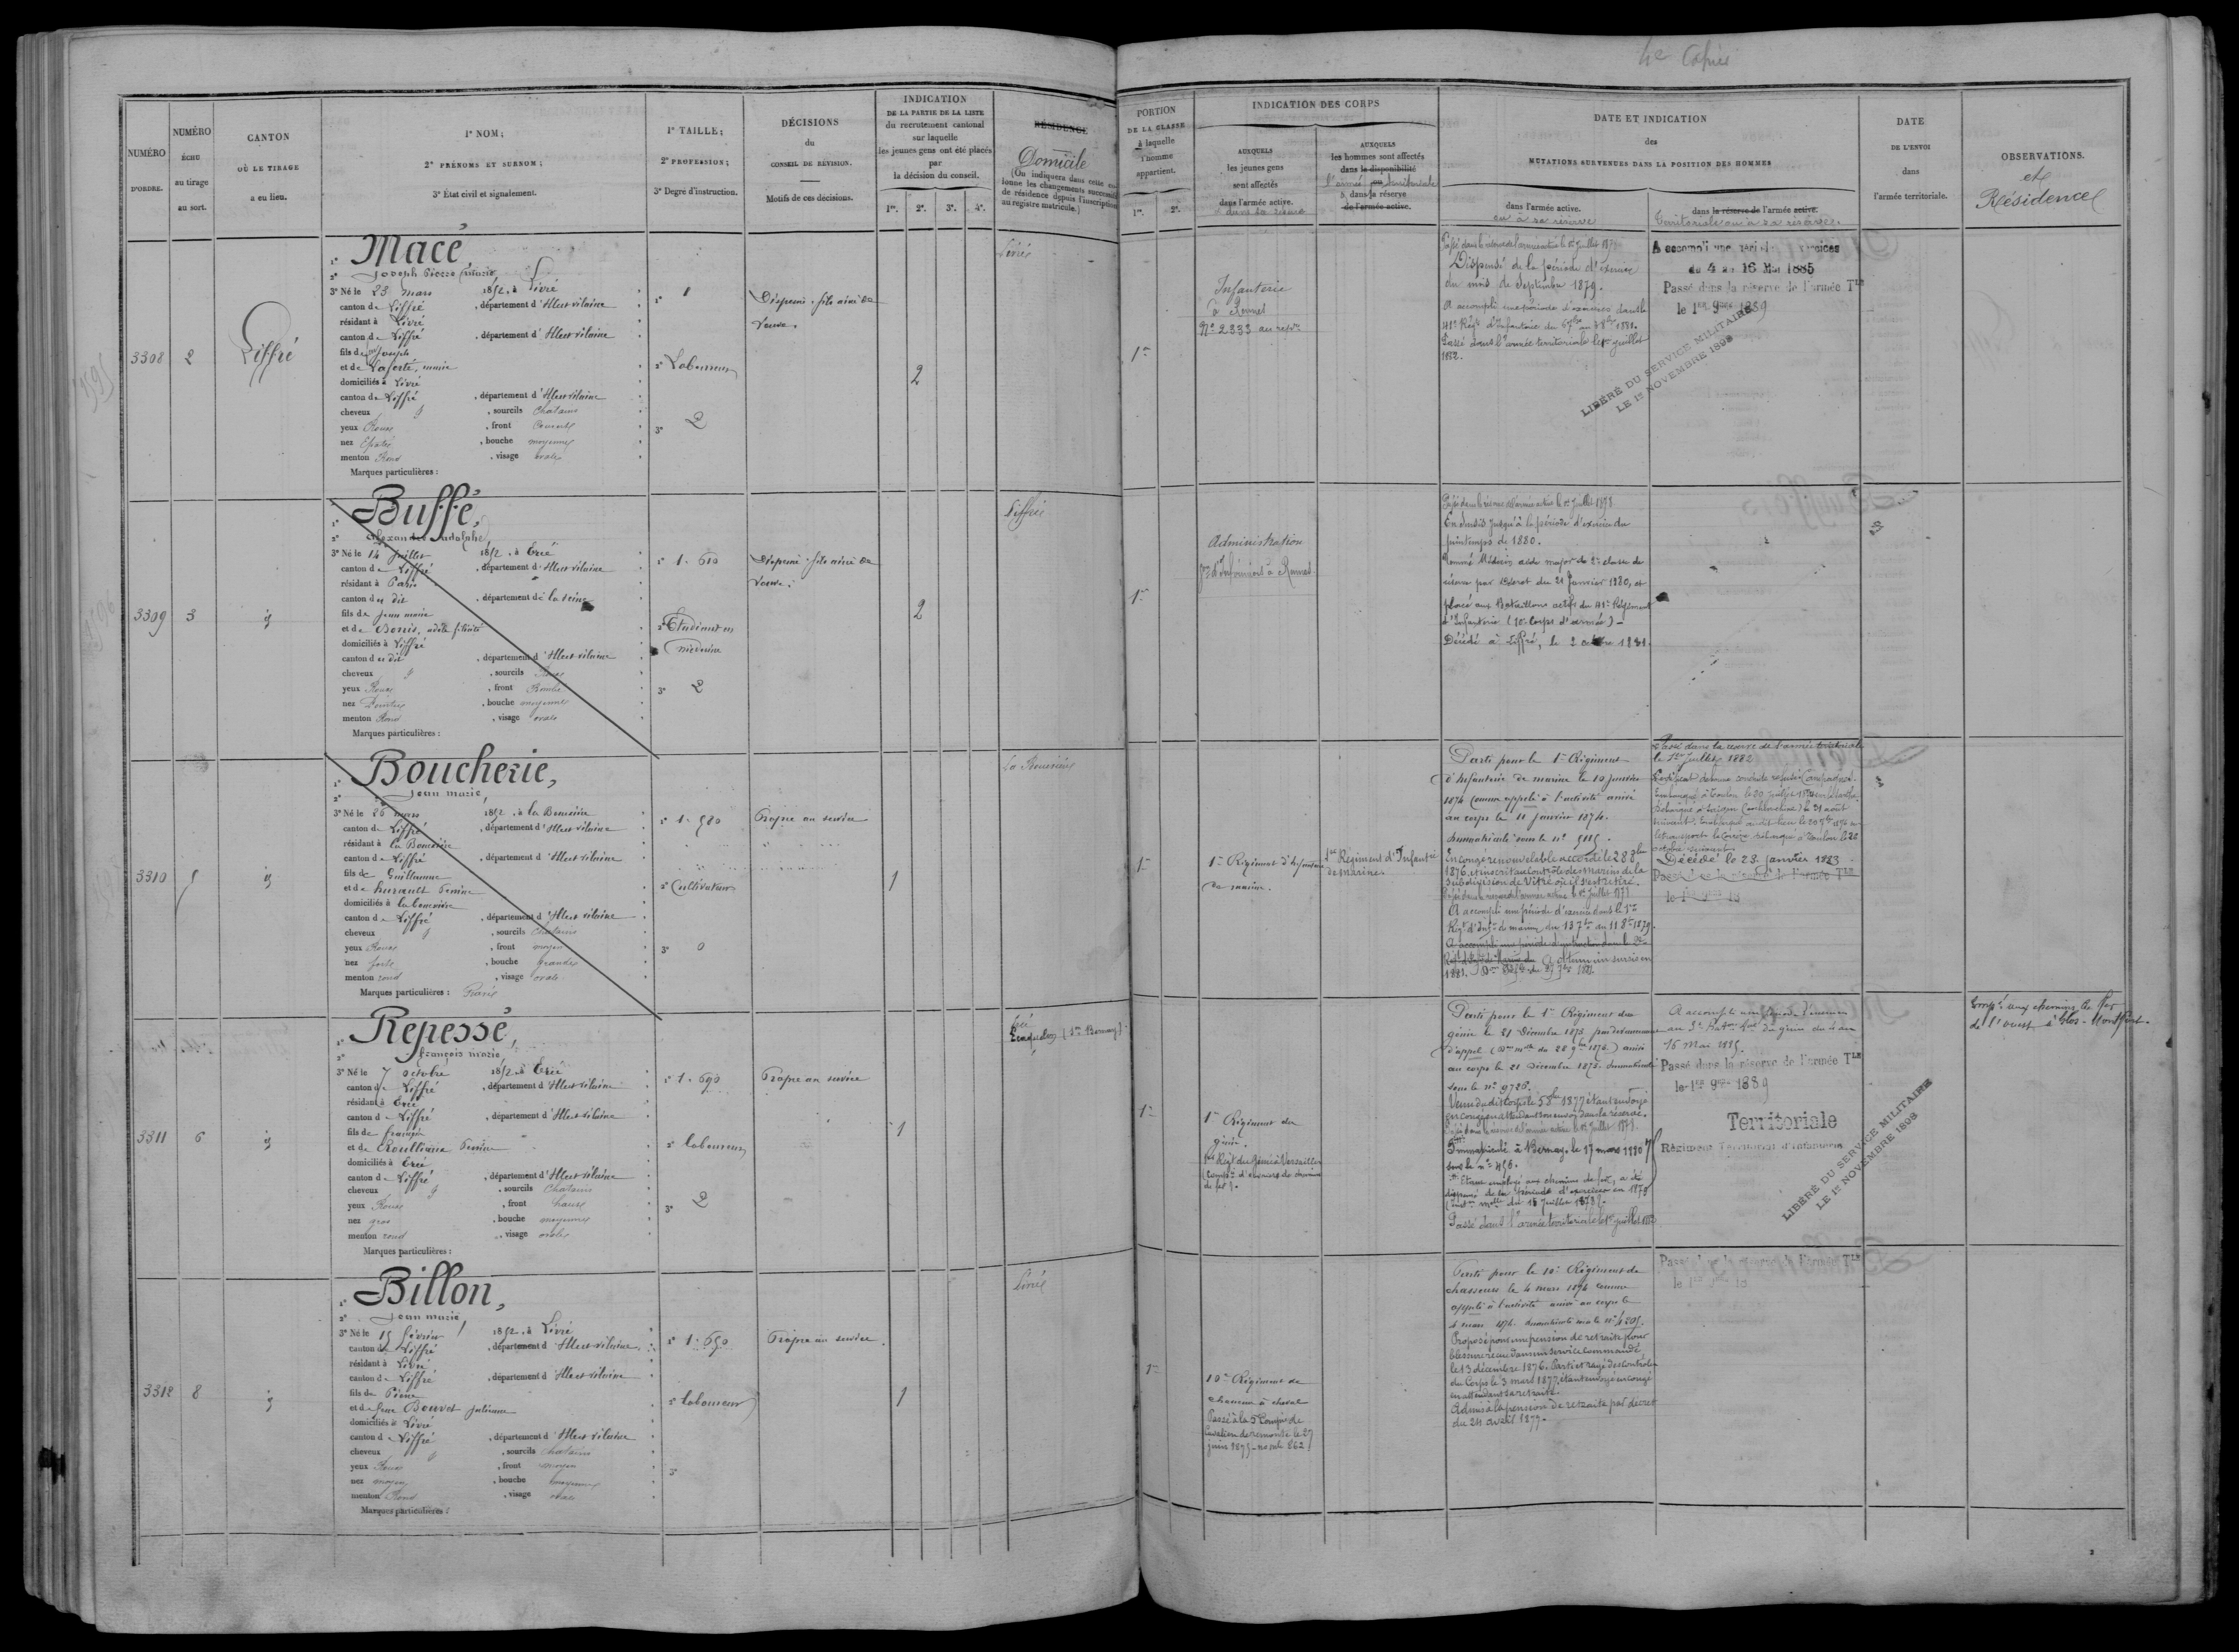 4e Copiée
NUMÉRO
D'ORDRE.
NUMÉRO
ÉCHU
au tirage
au sort.
CANTON
OÙ LE TIRAGE
a eu lieu.
1º NOM;
2º PRÉNOMS ET SURNOM;
3º État civil et signalement.
1º TAILLE;
2º PROFESSION;
3º Degré d'instruction.
DÉCISIONS
du
CONSEIL DE RÉVISION.
Motifs de ces décisions.
INDICATION
DE LA PARTIE DE LA LISTE
du recrutement cantonal
sur laquelle
les jeunes gens ont été placés
par
la décision du conseil.
1re. 2e. 3e. 4e.
RÉSIDENCE
Domicile
(On indiquera dans cette
lonne les changements
de résidence depuis l'inscription
au registre matricule.)
PORTION
DE LA CLASSE
à laquelle
l'homme
appartient.
1re. 2e.
INDICATION DES CORPS
AUXQUELS
les jeunes gens
sont affectés
dans l'armée active.
& dans sa réserve
AUXQUELS
les hommes sont affectés
dans la disponibilité
l'armée territoriale
& dans sa réserve
de l'armée active.
DATE ET INDICATION
des
MUTATIONS SURVENUES DANS LA POSITION DES HOMMES
dans l'armée active.
ou à sa réserve
dans la réserve de l'armée active.
territoriale ou à sa réserve.
DATE
DE L'ENVOI
dans
l'armée territoriale.
OBSERVATIONS.
et
Résidence
3308
2
Liffré
1º Macé,
2º Joseph Pierre Marie
3º Né le 23 mars 1852, à Livré
canton de Liffré, département d'Ille et vilaine
résidant à Livré
canton de Liffré, département d'Ille et vilaine
fils de feu Joseph
et de Laferté, marie
domiciliés à Livré
canton de Liffré, département d'Ille et vilaine
cheveux, sourcils Chatains
yeux Roux, front Couvert
nez Epaté, bouche moyenne
menton Rond, visage ovale
Marques particulières :
1º 1
2º Laboureur
3º 2
Dispensé. fils ainé de
Veuve.
2
Livré
1re
Infanterie
à Rennes
Nº 2333 au rep.re
Passé dans la réserve de l'armée active le 1er Juillet 187
Dispensé de la période d'exercice
du mois de Septembre 1879.
A accompli une période d'exercices dans le
41e Régt d'Infanterie du 6 7bre au 3 8bre 1881.
Passé dans l'armée territoriale le 1er juillet
1882.
A accompli une période d'exercices
du 4 au 16 Mai 1885
Passé dans la réserve de l'armée Tle
le 1er 9bre 1889
LIBÉRÉ DU SERVICE MILITAIRE
LE 1er NOVEMBRE 1898
3309
3
id
1º Buffé,
2º Alexandre adolphe
3º Né le 14 Juillet 1852, à Ercé
canton de Liffré, département d'Ille et vilaine
résidant à Paris
canton du dit, département de la Seine
fils de Jean marie
et de Bonis, adèle félicité
domiciliés à Liffré
canton du dit, département d'Ille et vilaine
cheveux, sourcils Roux
yeux Roux, front Bombé
nez Pointu, bouche moyenne
menton Rond, visage ovale
Marques particulières :
1º 1. 610
2º Etudiant en
médecine
3º 2
Dispensé. fils ainé de
veuve.
2
Liffré
1re
Administration
d'Infirmiers à Rennes
Passé dans la réserve de l'armée active le 1er Juillet 1878
En sursis jusqu'à la période d'exercice du
printemps de 1880.
Nommé Médecin aide major de 2e classe de
réserve par décret du 21 Janvier 1880, et
placé aux Bataillons actifs du 41e Régiment
d'Infanterie (10e Corps d'armée) -
Décédé à Liffré, le 2 octobre 1881.
3310
5
id
1º Boucherie,
2º Jean marie
3º Né le 26 mars 1852, à la Bouexière
canton de Liffré, département d'Ille et vilaine
résidant à la Bouexière
canton de Liffré, département d'Ille et vilaine
fils de Guillaume
et de hurault Perrine
domiciliés à la bouexière
canton de Liffré, département d'Ille et vilaine
cheveux, sourcils Chatains
yeux Roux, front moyen
nez forte, bouche grande
menton rond, visage ovale
Marques particulières :
1º 1. 580
2º Cultivateur
3º 0
Propre au service
1
La Bouexière
1re
1er Régiment d'Infanterie
de marine.
1er Régiment d'Infanterie
de Marine.
Parti pour le 1er Régiment
d'Infanterie de marine le 10 janvier
1874 comme appelé à l'activité arrivé
au corps le 11 janvier 1874.
Immatriculé sous le nº 9115.
En congé renouvelable accordé le 28 8bre
1876, et inscrit au contrôle des Marins de la
subdivision de Vitré où il s'est retiré.
Passé dans la réserve de l'armée active le 1er Juillet 1877
A accompli une période d'exercice dans le 1er
Régt d'Inf.ie de marine du 13 7bre au 11 8bre 1879.
A accompli une période d'instruction dans le 2e
A obtenu un sursis en
1881.
Passé dans la réserve de l'armée territoriale
le 1er Juillet 1882
Certificat de bonne conduite refusé. Campagnes:
Embarqué à Toulon le 20 juillet 1874
débarqué à Saigon (cochinchine) le 31 août
suivant. Embarqué au dit lieu le
Décédé le 23 janvier 1883
Passé dans la réserve de l'armée Tle
le 1er 9bre 18
3311
6
id
1º Repessé,
2º françois marie
3º Né le 7 octobre 1852, à Ercé
canton de Liffré, département d'Ille et vilaine
résidant à Ercé
canton de Liffré, département d'Ille et vilaine
fils de françois
et de Roullivière Perrine
domiciliés à Ercé
canton de Liffré, département d'Ille et vilaine
cheveux, sourcils Chatains
yeux Roux, front haut
nez gros, bouche moyenne
menton rond, visage ovale
Marques particulières :
1º 1. 690
2º laboureur
3º 2
Propre au service
1
Ercé
1re
1er Régiment du
génie.
1er Régt du Génie à Versailles
(Comp.ie d'ouvriers de chemins
de fer).
Parti pour le 1er Régiment du
génie le 21 Décembre 1873 par devancement
d'appel arrivé
au corps le 21 décembre 1873. Immatriculé
sous le nº 9726.
Venu du dit corps le 5 8bre 1877 étant envoyé
en congé en attendant son envoi dans la réserve.
Passé dans la réserve de l'armée active le 1er Juillet 1878.
Immatriculé à Bernay, le 17 mars 1880
sous le nº 456.
Etant employé aux chemins de fer, a été
dispensé de la période d'exercice en 1879
Passé dans l'armée territoriale le 1er juillet 1882
A accompli une période d'exercices
au 3e Bat.on du génie du 4 au
16 Mai 1885.
Passé dans la réserve de l'armée Tle
le 1er 9bre 1889
Territoriale
Régiment Territorial d'Infanterie
LIBÉRÉ DU SERVICE MILITAIRE
LE 1er NOVEMBRE 1898
Empé aux chemins de fer
de l'ouest à Glos-Montfort.
3312
8
id
1º Billon,
2º Jean marie
3º Né le 15 février 1852, à Livré
canton de Liffré, département d'Ille et vilaine
résidant à Livré
canton de Liffré, département d'Ille et vilaine
fils de Pierre
et de feue Bouvet Julienne
domiciliés à Livré
canton de Liffré, département d'Ille et vilaine
cheveux, sourcils Chatains
yeux Roux, front moyen
nez moyen, bouche moyenne
menton Rond, visage ovale
Marques particulières :
1º 1. 650
2º laboureur
3º
Propre au service
1
Livré
1re
10e Régiment de
chasseurs à cheval
Passé à la 3e Compie de
Cavaliers de remonte le 27
juin 1875 - no mle 862
Parti pour le 10e Régiment de
chasseurs le 4 mars 1874 comme
appelé à l'activité arrivé au corps le
4 mars 1874. Immatriculé sous le nº 4205.
Proposé pour une pension de retraite pour
blessure reçue dans un service commandé
le 13 décembre 1876. Parti et rayé des contrôles
du Corps le 3 mars 1877, étant envoyé en congé
en attendant sa retraite.
Admis à la pension de retraite par décret
du 24 avril 1877.
Passé dans la réserve de l'armée Tle
le 1er 9bre 18